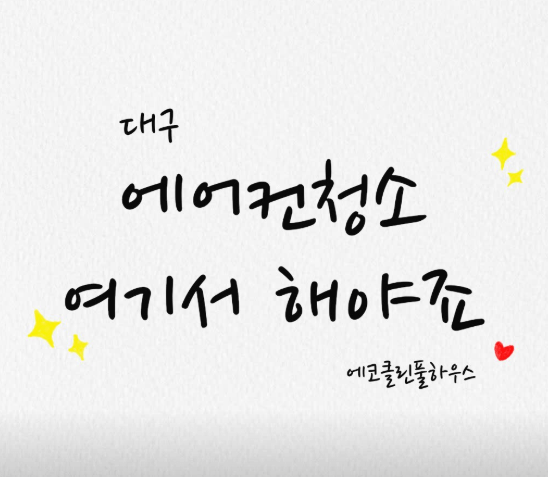 대구
에어컨청소
여기서 해야죠
에코클린풀하우스